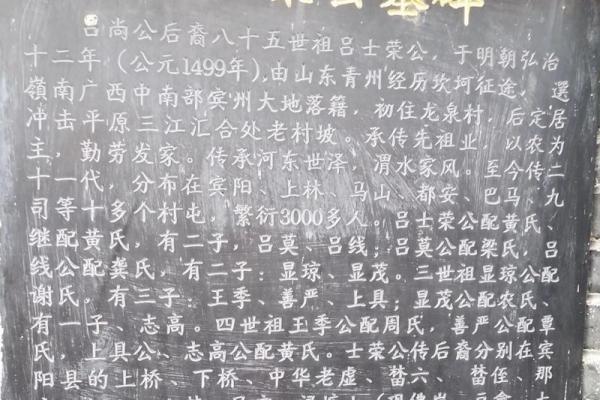 吕尚公后裔八十五世祖吕士荣公，于明朝弘治
十二年（公元1499年），由山东青州经历坎坷征途，選
嶺南广西中南部宾州大地落籍，初住龙泉村，定
冲击平原三江汇合处老村坡。承传先祖业，后居
主，勤劳发家。传承河东世泽，渭水家风。以农为
十一代，分布在宾阳、上林、马山、都安、巴马、二
司等十多个村屯，繁衍3000多人。吕士荣公配黄氏、
继配黄氏，有二子，吕莫、吕线；吕莫公配梁氏，吕
线公配龚氏，有二子：显琼、显茂。三世祖显琼公配
谢氏，有三子：王季、善严、上具；显茂公配农氏、
有一子、志高。四世祖王季公配周氏，善严公配覃
氏，上具公、志高公配黄氏。士荣公传后裔分别在宾
阳县的上桥、下桥、中华老虚、六、侄、那